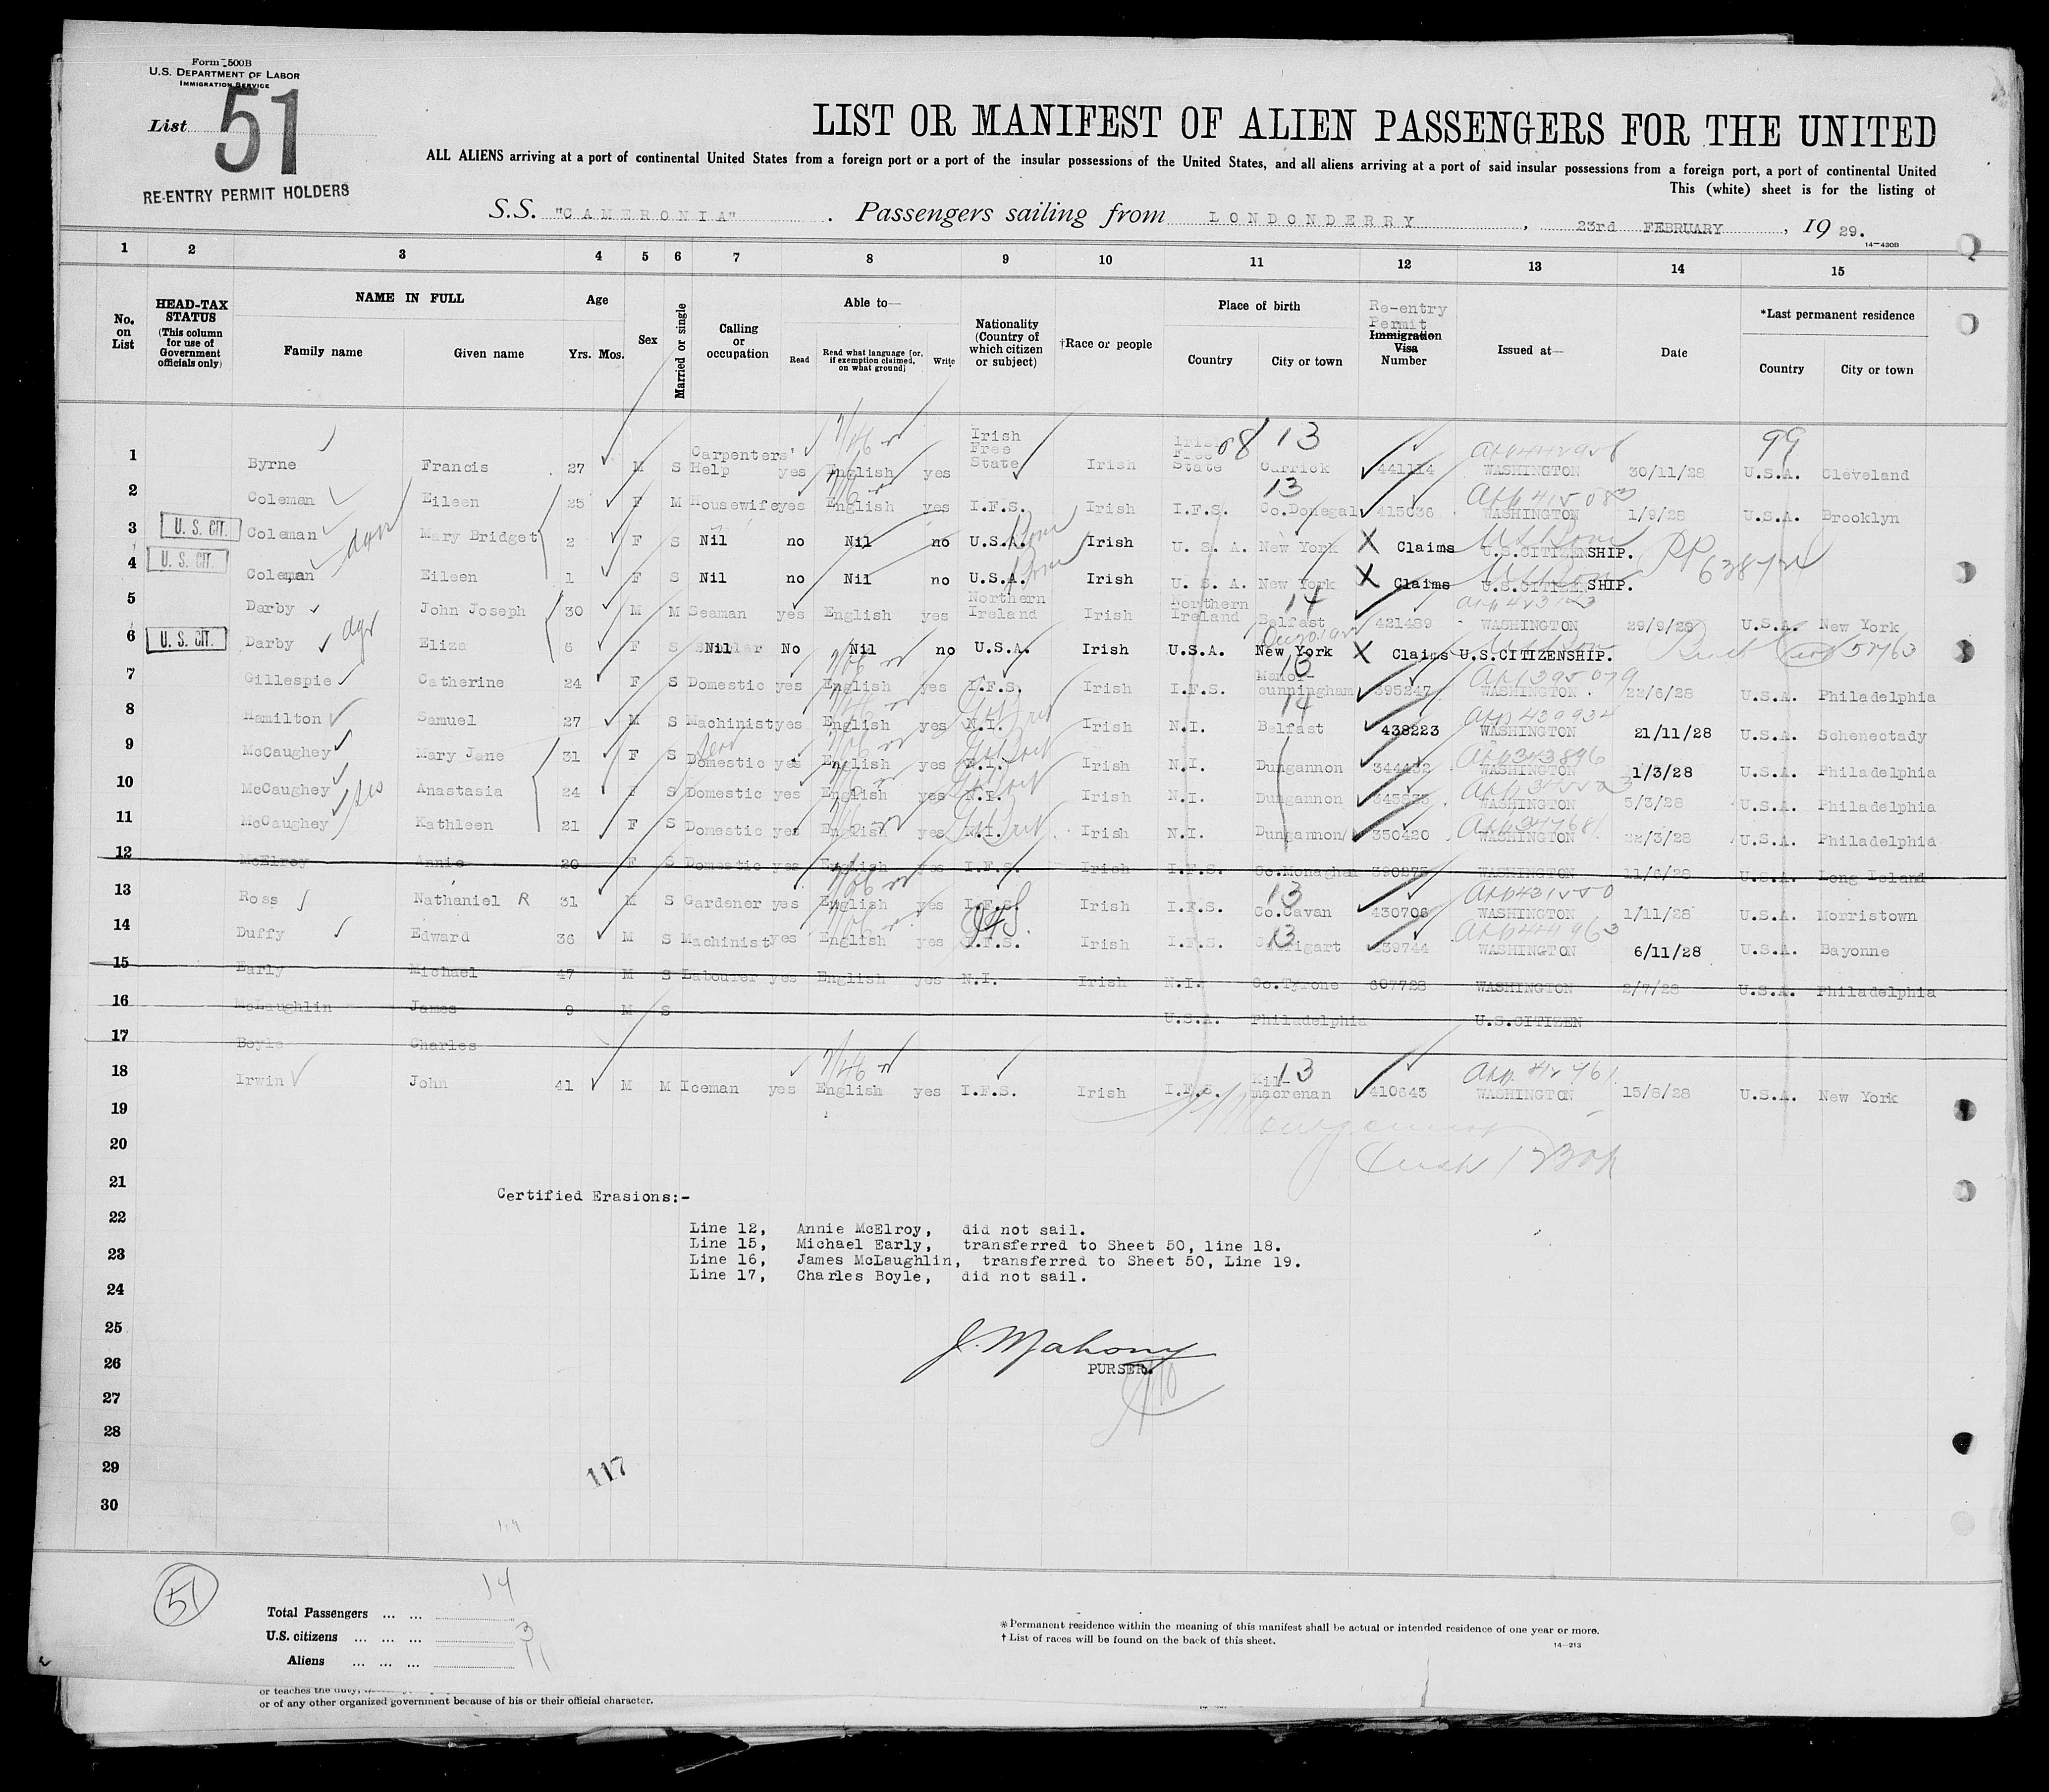 Form 500B
U.S. DEPARTMENT OF LABOR
IMMIGRATION SERVICE
List 51
RE-ENTRY PERMIT HOLDERS
LIST OR MANIFEST OF ALIEN PASSENGERS FOR THE UNITED
ALL ALIENS arriving at a port of continental United States from a foreign port or a port of the insular possessions of the United States, and all aliens arriving at a port of said insular possessions from a foreign port, a port of continental United
This (white) sheet is for the listing of
S.S. "CAMERONIA". Passengers sailing from LONDONDERRY, 23rd FEBRUARY, 19 29.
14-430B
1 2 3 4 5 6 7 8 9 10 11 12 13 14 15
No. on List
HEAD-TAX STATUS (This column for use of Government officials only)
NAME IN FULL
Family name Given name
Age
Yrs. Mos.
Sex
Married or single
Calling or occupation
Able to—
Read Read what language [or, if exemption claimed, on what ground] Write
Nationality (Country of which citizen or subject)
†Race or people
Place of birth
Country City or town
Re-entry Permit
Immigration Visa Number
Issued at—
Date
*Last permanent residence
Country City or town
08 13 99
1 Byrne Francis 27 M S Carpenters' Help yes English yes Irish Free State Irish Irish Free State Carrick 441114 WASHINGTON 30/11/28 U.S.A. Cleveland
13
2 Coleman Eileen 25 F M Housewife yes English yes I.F.S. Irish I.F.S. Co.Donegal 415036 WASHINGTON 1/9/28 U.S.A. Brooklyn
3 U. S. CIT. Coleman Mary Bridget 2 F S Nil no Nil no U.S.A. Irish U. S. A. New York X Claims U.S.CITIZENSHIP.
4 U. S. CIT. Coleman Eileen 1 F S Nil no Nil no U.S.A. Irish U. S. A. New York X Claims U.S.CITIZENSHIP.
14
5 Darby John Joseph 30 M M Seaman yes English yes Northern Ireland Irish Northern Ireland Belfast 421489 WASHINGTON 29/9/28 U.S.A. New York
6 U. S. CIT. Darby Eliza 6 F S Nil No Nil no U.S.A. Irish U.S.A. New York X Claims U.S.CITIZENSHIP.
13
7 Gillespie Catherine 24 F S Domestic yes English yes I.F.S. Irish I.F.S. Manor-cunningham 395247 WASHINGTON 22/6/28 U.S.A. Philadelphia
14
8 Hamilton Samuel 27 M S Machinist yes English yes N.I. Irish N.I. Belfast 438223 WASHINGTON 21/11/28 U.S.A. Schenectady
9 McCaughey Mary Jane 31 F S Domestic yes English yes N.I. Irish N.I. Dungannon WASHINGTON 1/3/28 U.S.A. Philadelphia
10 McCaughey Anastasia 24 F S Domestic yes English yes N.I. Irish N.I. Dungannon WASHINGTON 5/3/28 U.S.A. Philadelphia
11 McCaughey Kathleen 21 F S Domestic yes English yes N.I. Irish N.I. Dungannon 350420 WASHINGTON 22/3/28 U.S.A. Philadelphia
12 McElroy Annie 20 F S Domestic yes English yes I.F.S. Irish I.F.S. Co.Monaghan WASHINGTON 11/6/28 U.S.A. Long Island
13
13 Ross Nathaniel R 31 M S Gardener yes English yes I.F.S. Irish I.F.S. Co.Cavan 430706 WASHINGTON 1/11/28 U.S.A. Morristown
13
14 Duffy Edward 36 M S Machinist yes English yes I.F.S. Irish I.F.S. Carrigart WASHINGTON 6/11/28 U.S.A. Bayonne
15 Early Michael 47 M S Labourer yes English yes N.I. Irish N.I. Co.Tyrone 607728 WASHINGTON 2/7/28 U.S.A. Philadelphia
16 McLaughlin James 9 M S U.S.A. Philadelphia U.S.CITIZEN
17 Boyle Charles
13
18 Irwin John 41 M M Iceman yes English yes I.F.S. Irish I.F.S. Kil-macrenan 410643 WASHINGTON 15/8/28 U.S.A. New York
19
20
21
Certified Erasions:-
22
Line 12, Annie McElroy, did not sail.
Line 15, Michael Early, transferred to Sheet 50, line 18.
23
Line 16, James McLaughlin, transferred to Sheet 50, Line 19.
Line 17, Charles Boyle, did not sail.
24
25
J. Mahony
26
PURSER.
27
28
29
117
30
51
Total Passengers ... ... 14
U.S. citizens ... ... ... 3
Aliens ... ... ... 11
*Permanent residence within the meaning of this manifest shall be actual or intended residence of one year or more.
†List of races will be found on the back of this sheet.
14-213
or of any other organized government because of his or their official character.